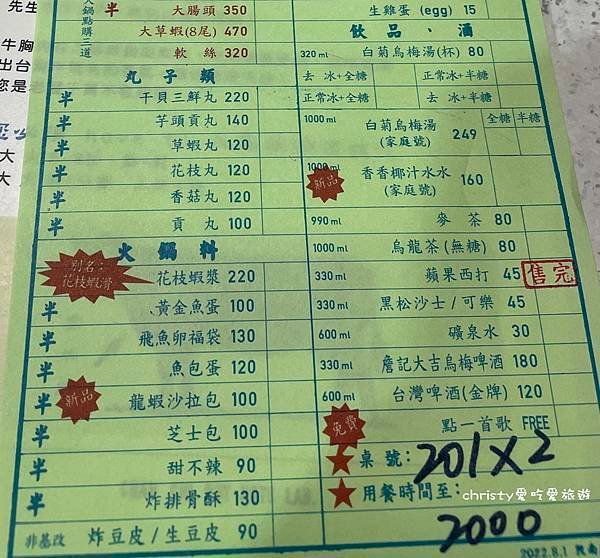 先生
牛胸
出台
您是
大
大
火鍋點購二道
半 大腸頭 350
大草蝦(8尾) 470
軟絲 320
丸子類
半 干貝三鮮丸 220
半 芋頭貢丸 140
半 草蝦丸 120
半 花枝丸 120
半 香菇丸 120
半 貢丸 100
火鍋料
別名：花枝蝦滑
花枝蝦漿 220
半 黃金魚蛋 100
半 飛魚卵福袋 130
半 魚包蛋 120
半 新品 龍蝦沙拉包 100
半 芝士包 100
半 甜不辣 90
半 炸排骨酥 130
非基改 炸豆皮/生豆皮 90
生雞蛋 (egg) 15
飲品、酒
320 ml 白菊烏梅湯(杯) 80
去冰+全糖 正常冰+半糖
正常冰+全糖 去冰+半糖
1000 ml 白菊烏梅湯 (家庭號) 249 全糖 半糖
1000 ml 新品 香香椰汁水水 (家庭號) 160
990 ml 麥茶 80
1000 ml 烏龍茶(無糖) 80
330 ml 蘋果西打 45 售完
330 ml 黑松沙士/可樂 45
600 ml 礦泉水 30
330 ml 詹記大吉烏梅啤酒 180
600 ml 台灣啤酒(金牌) 120
免費 點一首歌 FREE
★桌號: 201X2
★用餐時間至:
2000
christy愛吃愛旅遊
2022.8.1